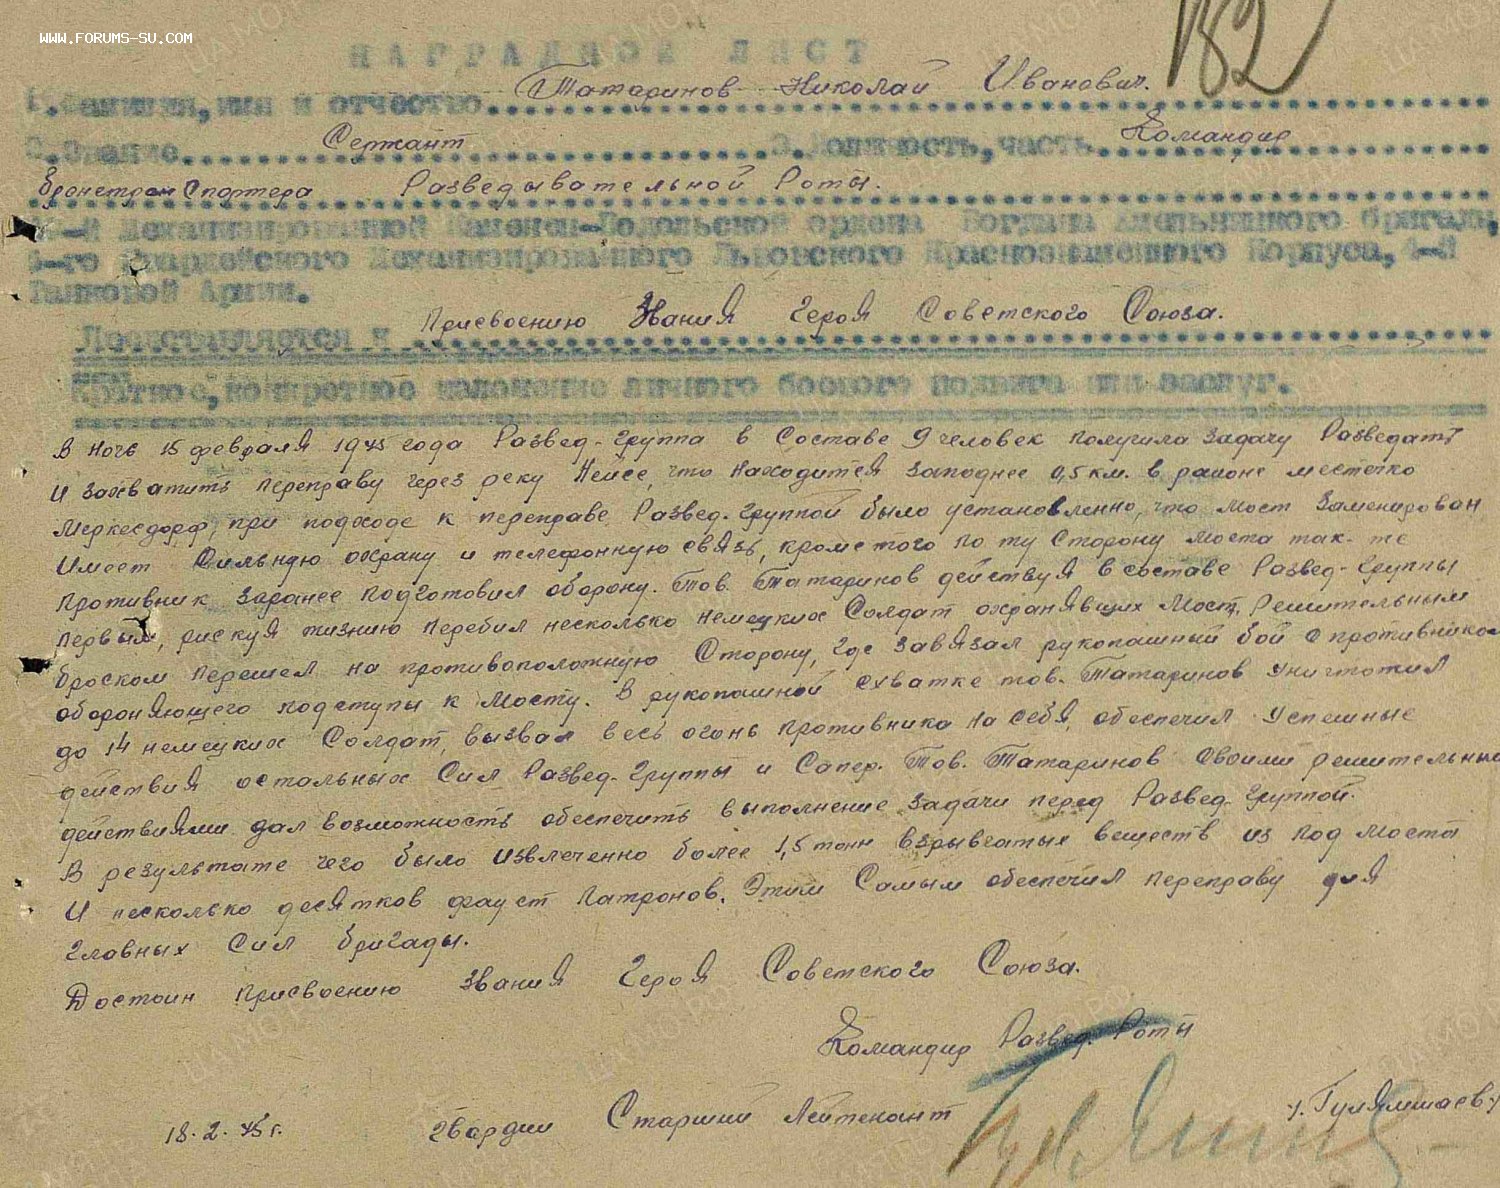 WWW.FORUMS-SU.COM
182
НАГРАДНОЙ ЛИСТ
1.Фамилия,имя и отчество Татаринов Николай Иванович.
2.Звание Сержант 3.Должность,часть Командир
бронетранспортера Разведывательной Роты.
-й Механизированной Каменец-Подольской ордена Богдана Хмельницкого бригады,
6-го Гвардейского Механизированного Львовского Краснознаменного Корпуса, 4-й
Танковой Армии.
Представляется к Присвоению Звания Героя Советского Союза.
Краткое,конкретное изложение личного боевого подвига или заслуг.
В ночь 15 февраля 1945 года Развед-группа в составе 9 человек получила задачу Разведать
и захватить переправу через реку Нейсе, что находится западнее 0,5 км. в районе местечко
Меркесдорф, при подходе к переправе Развед.группой было установленно, что мост заменирован
Имеет Сильную охрану и телефонную связь, кроме того по ту Сторону моста так-же
противник заранее подготовил оборону. Тов. Татаринов действуя в составе Развед-группы
первым, рискуя жизнию перебил несколько немецких Солдат охранявших Мост, Решительным
броском перешел на противоположную Сторону, где завязал рукопашный бой с противником
обороняющего подступы к Мосту. В рукопашной схватке тов. Татаринов уничтожил
до 14 немецких Солдат, вызвал весь огонь противника на себя, обеспечил успешные
действия остальных Сил Развед-группы и Сапер. Тов. Татаринов своими решительными
действиями дал возможность обеспечить выполнение задачи перед Развед.группой.
В результате чего было извлеченно более 1,5 тонн взрывчатых веществ из под моста
И несколько десятков фауст патронов. Этим Самым обеспечил переправу для
главных Сил бригады.
Достоин присвоению звания Героя Советского Союза.
Командир Развед. Роты
18.2.45 г. гвардии Старший Лейтенант